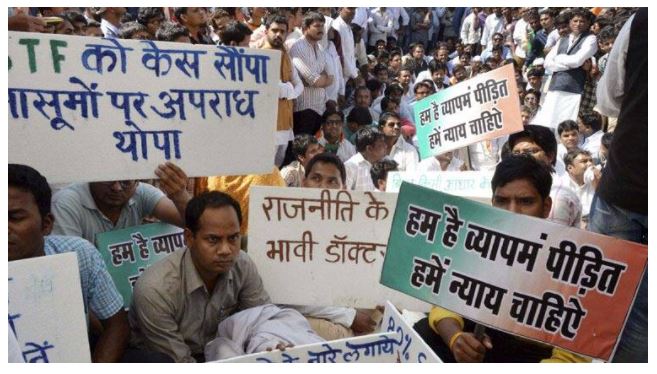 STF को केस सौंपा
मासूमों पर अपराध
थोपा
हम है व्यापम पीड़ित
हमें न्याय चाहिऐ
राजनीति के
भावी डॉक्टर
हम है व्यापमं पीड़ित
हमें न्याय चाहिऐ
हम है व्या
के नारे लगाये